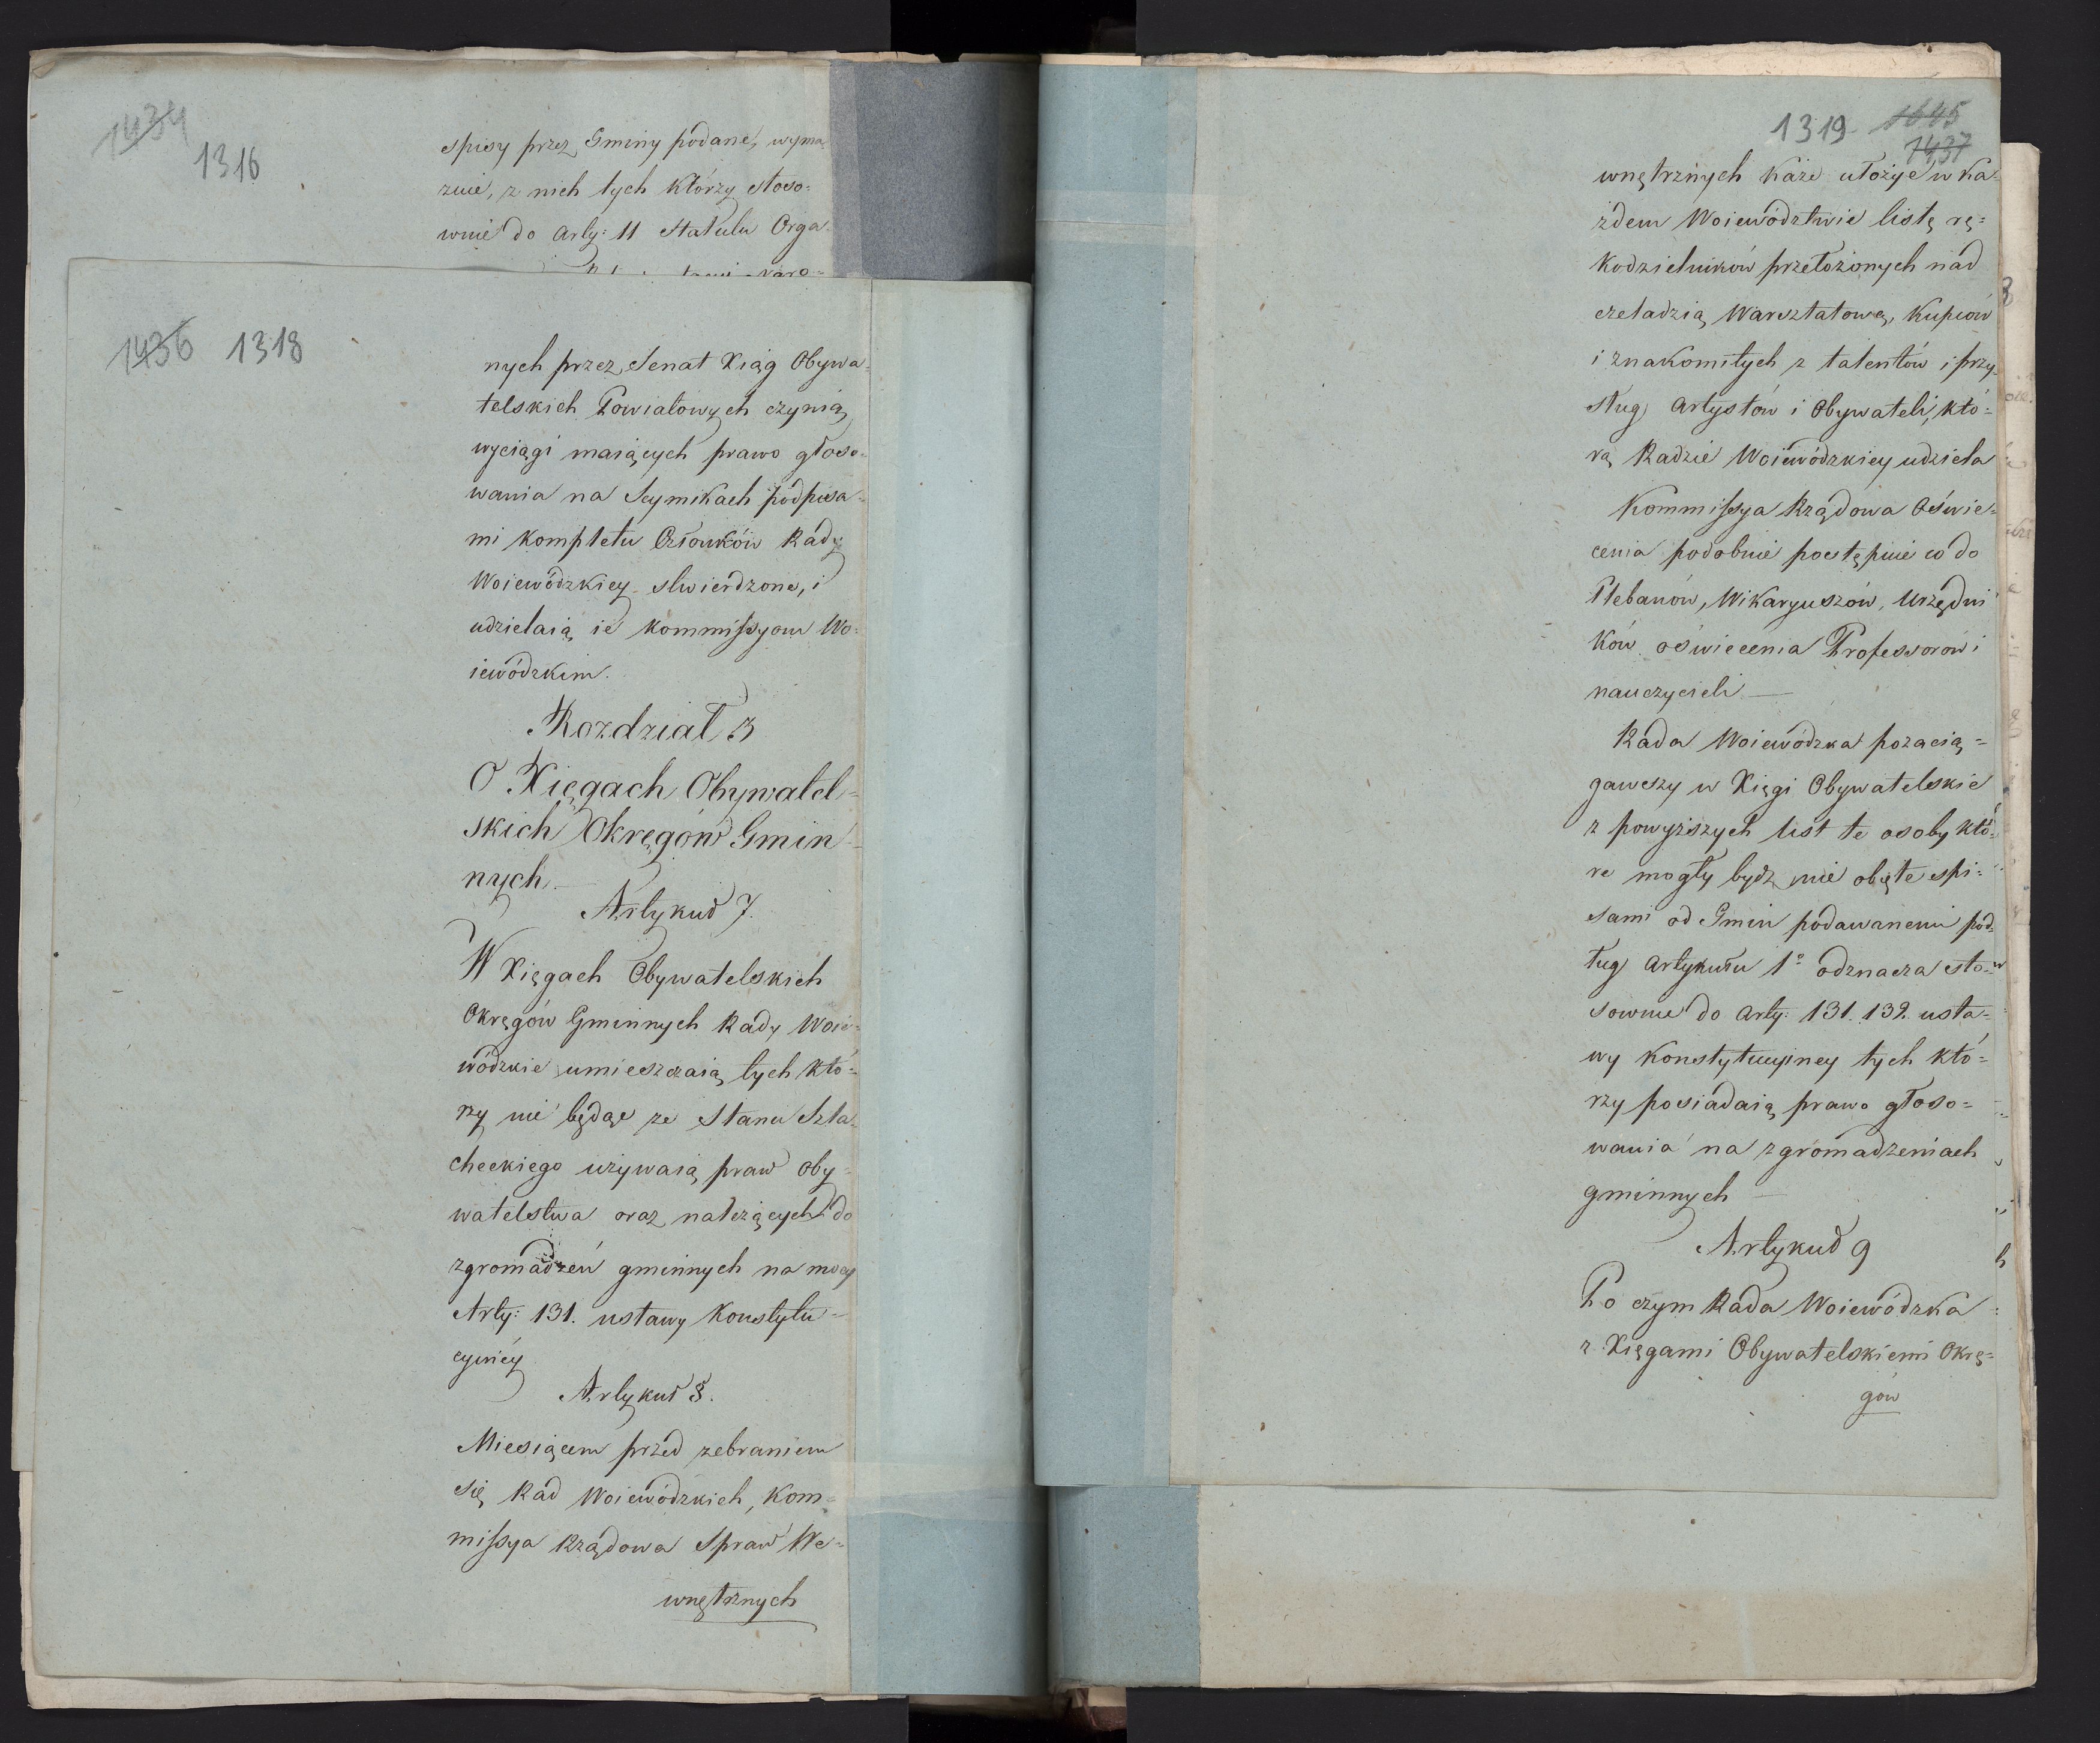 1434
1316
spisy przez Gminy podane, wyma
zuie, z nich tych którzy stoso=
wnie do Arty: 11 Statutu Orga=
1436 1318
nych przez Senat Xiąg Obywa=
telskich Powiatowych czynią
wyciągi maiących prawo głoso=
wania na Seymikach podpisa=
mi kompletu Członków Rady
Woiewódzkiey stwierdzone, i
udzielaią ie Kommissyom Wo=
iewódzkim.
Rozdział 3
O Xięgach Obywatel=
skich Okręgów Gmin=
nych.—
Artykuł 7.
W Xięgach Obywatelskich
Okręgów Gminnych Rady Woie=
wódzkie umieszczaią tych któ=
rzy nie będąc ze Stanu Szla=
checkiego używaią praw oby=
watelstwa oraz należących do
zgromadzeń gminnych na mocy
Arty: 131. ustawy Konstytu=
cyiney
Artykuł 8.
Miesiącem przed zebraniem
się Rad Woiewódzkich, Kom=
missya Rządowa Spraw We=
wnętrznych
1319 1645
1437
wnętrznych każe ułożyć w ka=
żdem Woiewództwie listę rę=
kodzielników przełożonych nad
czeladzią Warsztatową, Kupców
i znakomitych z talentów i przy=
sług Artystów i Obywateli, któ=
rą Radzie Woiewódzkiey udziela
Kommissya Rządowa Oświe=
cenia podobnie postępuie co do
Plebanów, Wikaryuszów, Urzędni
ków oświecenia Professorów i
nauczycieli —
Rada Woiewódzka pozacią=
gawszy w Xięgi Obywatelskie
z powyższych list te osoby któ=
re mogły bydz nie obięte spi=
sami od Gmin podawanemi pod=
ług Artykułu 1º odznacza sto=
sownie do Arty: 131. 132. usta=
wy Konstytucyiney tych któ=
rzy posiadaią prawo głoso=
wania na zgromadzeniach
gminnych —
Artykuł 9
Po czym Rada Woiewódzka
z Xięgami Obywatelskiemi Okrę=
gów